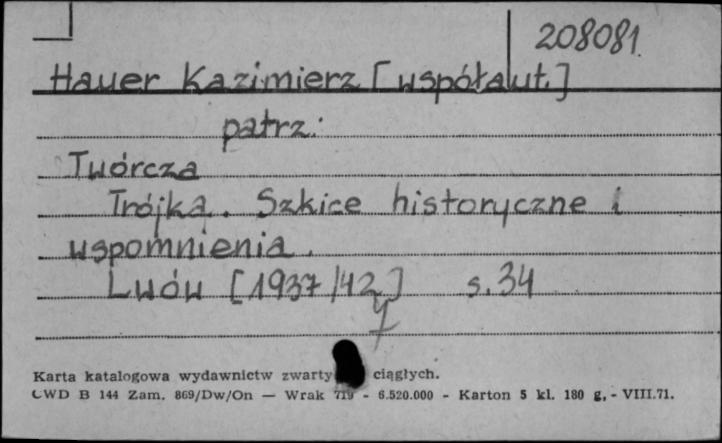 208081.
Hauer Kazimierz [współaut.]
patrz:
Twórcza
Trójka. Szkice historyczne i
wspomnienia.
Lwów [1937/42] s. 34
Karta katalogowa wydawnictw zwarty ciągłych.
CWD B 144 Zam. 869/Dw/On — Wrak 719 - 6.520.000 - Karton 5 kl. 180 g. - VIII.71.